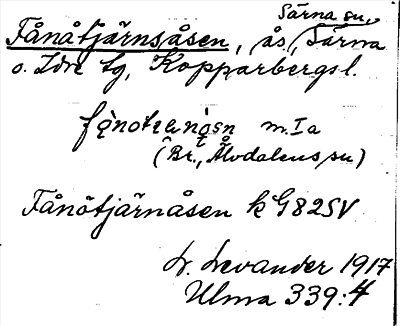 Särna sn,
Fånåtjärnsåsen, ås, Särna
o. Idre tg, Kopparbergsl.
m. Ia
(Br., Älvdalens sn)
Fånötjärnåsen k G82SV
L. Levander 1917
Ulma 339:4